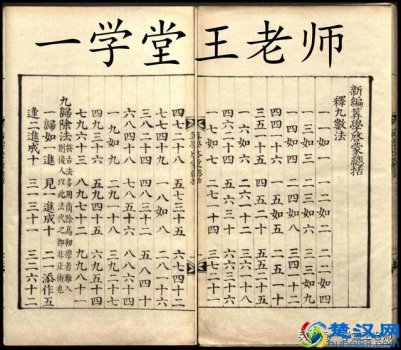 一学堂王老师
新編筭學啓蒙總括
釋九數法
一一如一 一二如二 二二如四
一三如三 二三如六 三三如九
一四如四 二四如八 三四一十二
四四一十六 一五如五 二五一十
三五一十五 四五二十 五五二十五
一六如六 二六一十二 三六一十八
四六二十四 五六三十 六六三十六
一七如七 二七一十四 三七二十一
四七二十八 五七三十五 六七四十二
七七四十九 一八如八 二八一十六
三八二十四 四八三十二 五八四十
六八四十八 七八五十六 八八六十四
一九如九 二九一十八 三九二十七
四九三十六 五九四十五 六九五十四
七九六十三 八九七十二 九九八十一
九歸除法 按古法多用商除為初學者難入則後人以此法代之即非正術也
一歸如一進 見一進成十 二一添作五
逢二進成十 三一三十一 三二六十二
楚汉网